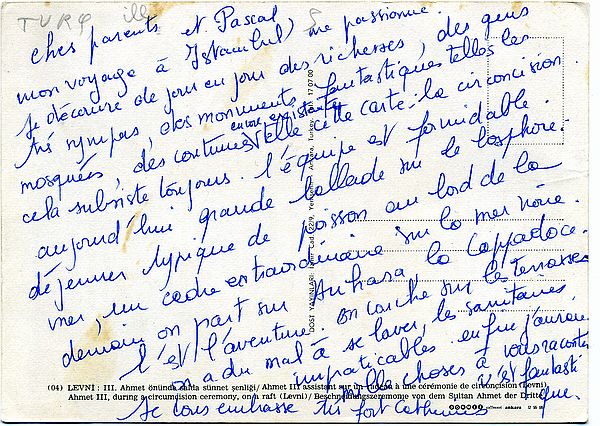 TURQ
ches parents et Pascal
mon voyage à Istambul me passionne.
Je découvre de jour en jour des richesses, des gens
très sympas, des monuments fantastiques telles les
mosquées, des coutumes encore existantes telle cette carte : la circoncision.
cela subsiste toujours. l'équipe est formidable.
aujourd'hui grande ballade sur le bosphore.
déjeuner typique de poisson au bord de la
mer, un cadre extraordinaire sur la mer noire.
demain on part sur Ankara, la Cappadoce.
l'est l'aventure. on couche sur les terrasses
on a du mal à se laver, les sanitaires
impraticables. enfin j'aurai
mille choses à vous raconter
c'est fantasti
que.
Je vous embrasse très fort Catherine
DOST YAYINLARI: İzmir Cad. 22/9, Yenişehir - Ankara, Turkey, Tel: 17 07 00
(04) LEVNİ : III. Ahmet önünde salda sünnet şenliği / Ahmet III assistant sur un radeau à une cérémonie de circonçision (Levni)
Ahmet III, during a circumdision ceremony, on a raft (Levni) / Beschneidungszeremonie von dem Sultan Ahmet der Dritte
offset ankara